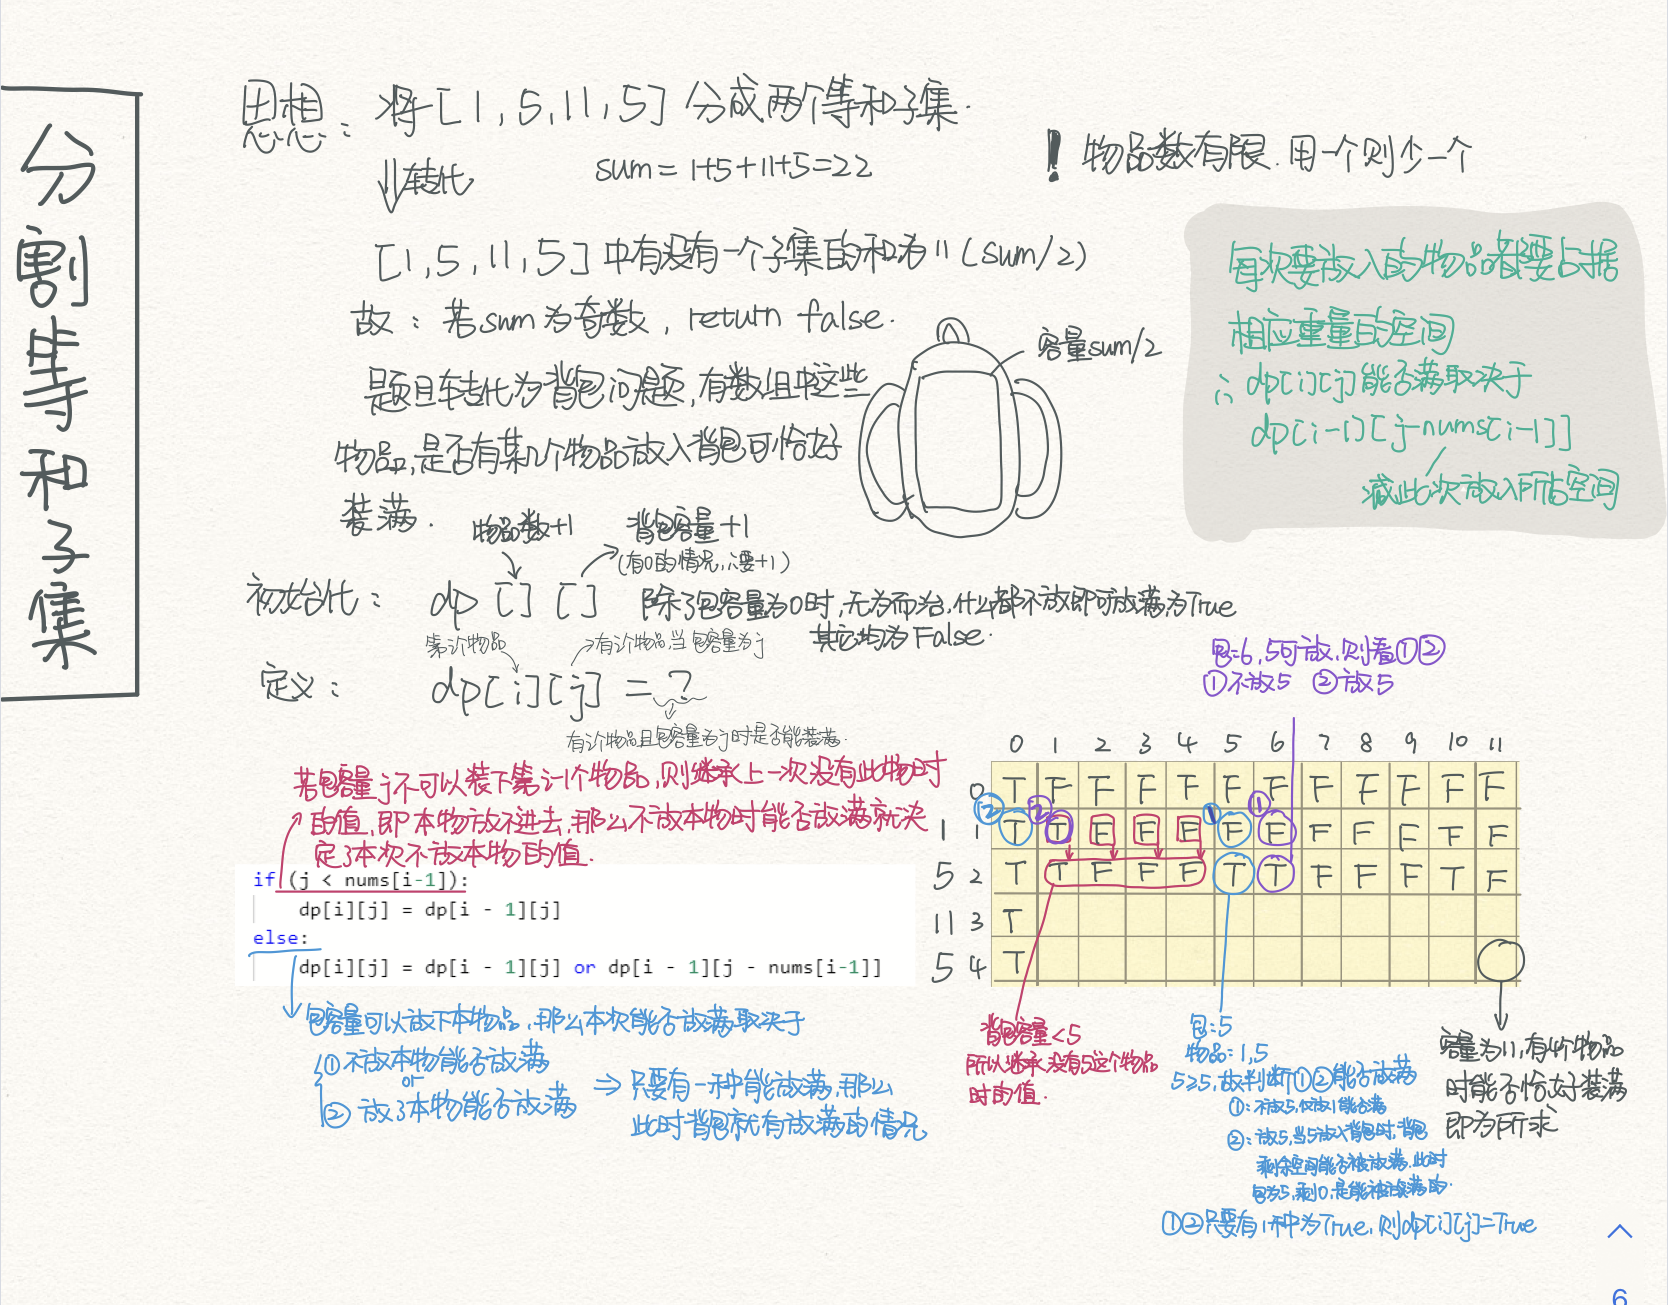 分割等和子集
思想：将[1, 5, 11, 5] 分成两个等和子集.
转化
sum = 1+5+11+5=22
! 物品数有限.用一个则少一个
[1, 5, 11, 5] 中有没有一个子集的和为11 (sum/2)
故：若sum为奇数, return false.
容量sum/2
题目转化为背包问题,有数组中这些
物品,是否有某几个物品放入背包可恰好
装满.
每次要放入的物品都要占据
相应重量的空间
∴ dp[i][j]能否满取决于
dp[i-1][j-nums[i-1]]
减此次放入所占空间
物品数+1
背包容量+1
(有0的情况,要+1)
初始化： dp [] []
除了包容量为0时,无为而治,什么都不放即可放满为True
其它均为False.
第i个物品
有i个物品,当包容量为j
定义： dp[i][j] = ?
有i个物品且包容量为j时是否能装满.
包=6,5可放.则看①②
①不放5 ②放5
若包容量j不可以装下第i-1个物品,则继承上一次没有此物时
的值,即本物放不进去,那么不放本物时能否放满就决
定了本次不放本物的值.
if (j < nums[i-1]):
dp[i][j] = dp[i - 1][j]
else:
dp[i][j] = dp[i - 1][j] or dp[i - 1][j - nums[i-1]]
包容量可以放下本物品,那么本次能否放满取决于
①不放本物能否放满
or
②放了本物能否放满
⇒ 只要有一种能放满,那么
此时背包就有放满的情况
0 1 2 3 4 5 6 7 8 9 10 11
0 T F F F F F F F F F F F
② ② ① ①
1 1 T T F F F F F F F F F F
5 2 T T F F F T T F F F T F
11 3 T
5 4 T
背包容量<5
所以继承没有5这个物品
时的值.
包=5
物品=1,5
5≥5,故判断①②能否放满
①：不放5,仅放1能否满
②：放5,当5放入背包时,背包
剩余空间能否被放满.此时
包为5,剩0,是能被放满的.
①②只要有1种为True,则dp[i][j]=True
容量为11,有4个物品
时能否恰好装满
即为所求
6